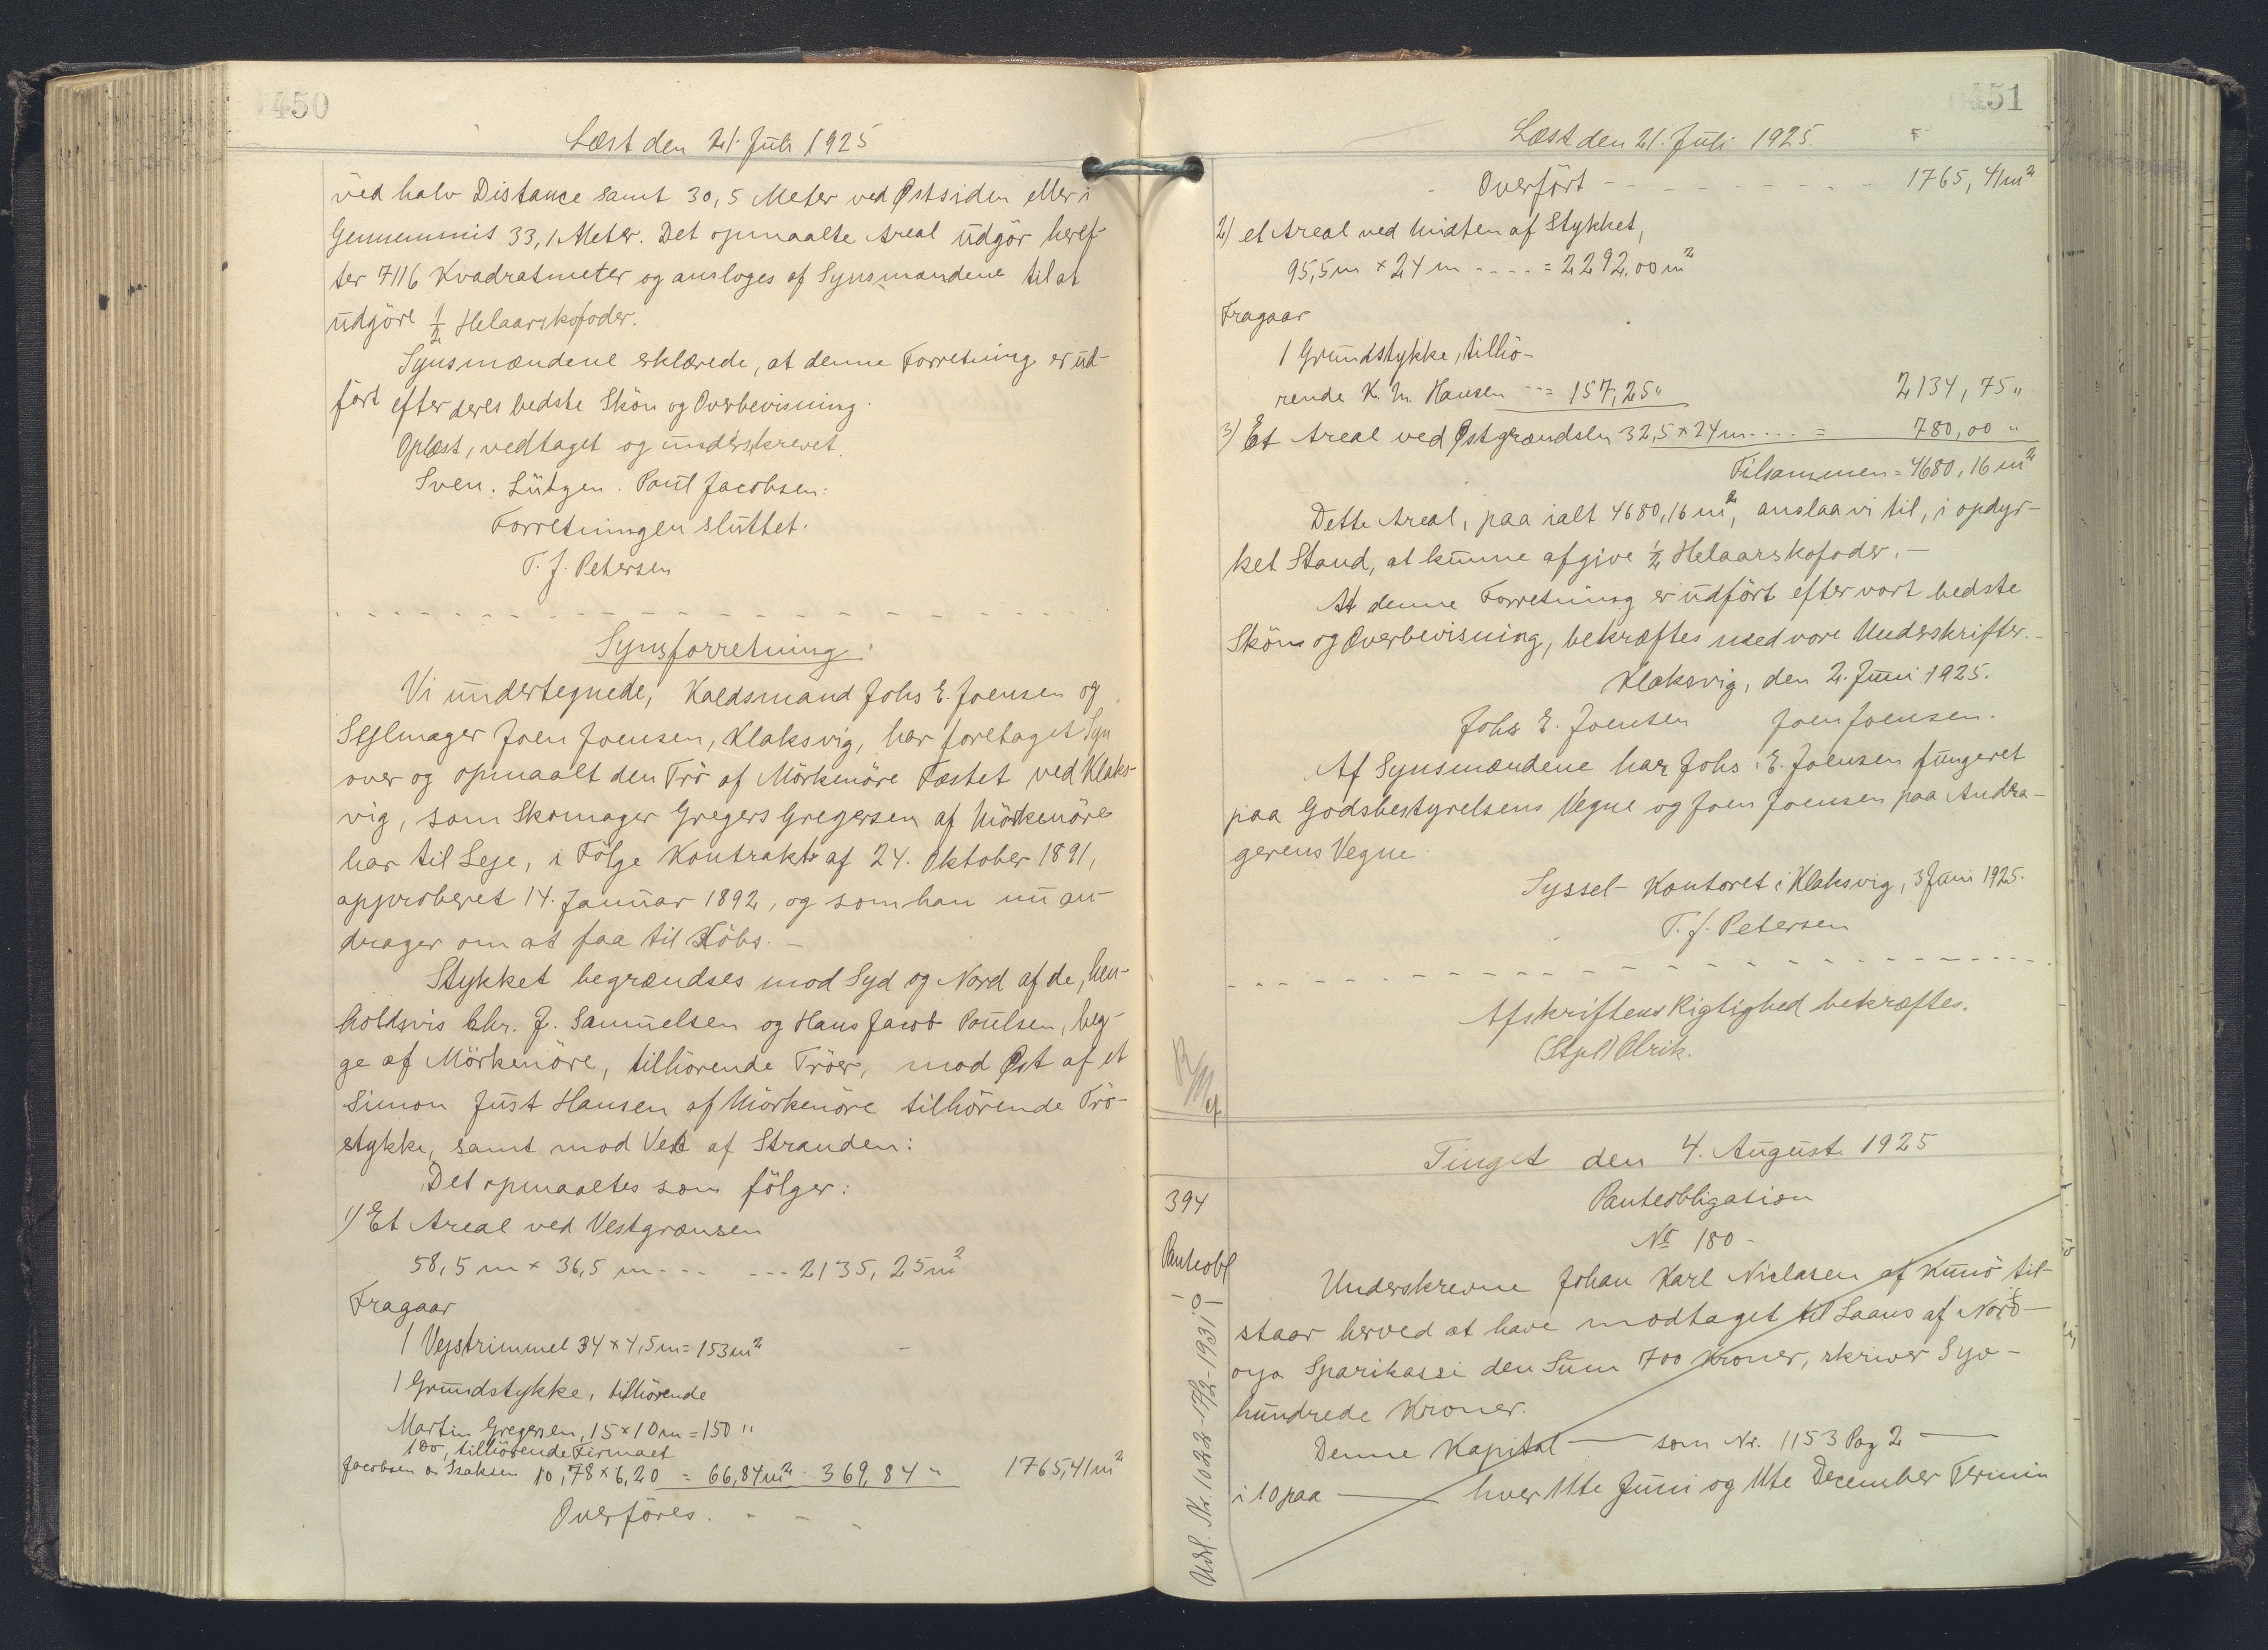 450
Læst den 21. Juli 1925
ved halv Distance samt 30,5 Meter ved Østsiden eller i
Gennemsnit 33,1 Meter. Det opmaalte Areal udgör heref-
ter 7116 Kvadratmeter og ansloges af Synsmændene til at
udgöre 1/2 Helaarskofoder.
Synsmændene erklærede, at denne Forretning er ud-
fört efter deres bedste Skön og Overbevisning.
Oplæst, vedtaget og underskrevet.
Sven. Lützen. Poul Jacobsen.
Forretningen sluttet.
T. J. Petersen
Synsforretning:
Vi undertegnede, Kaldsmand Johs E. Joensen og
Sejlmager Joen Joensen, Klaksvig, har foretaget Syn
over og opmaalt den Trö af Mörkenöre Fæstet ved Klaks-
vig, som Skomager Gregers Gregersen af Mörkenöre
har til Leje, i Fölge Kontrakt af 24. Oktober 1891,
approberet 14. Januar 1892, og som han nu an-
drager om at faa til Köbs. -
Stykket begrændses mod Syd og Nord af de, hen-
holdsvis Chr. J. Samuelsen og Hans Jacob Poulsen, beg-
ge af Mörkenöre, tilhörende Tröer, mod Øst af et
Simon Just Hansen af Mörkenöre tilhörende Trö-
stykke, samt mod Vest af Stranden:
Det opmaaltes som fölger:
1) Et Areal ved Vestgrænsen
58,5 m × 36,5 m - - - - - - 2135,25 m2
Fragaar
1 Vejstrimmel 34 × 4,5 m = 153 m2
1 Grundstykke, tilhörende
Martin Gregersen, 15 × 10 m = 150 "
1 do, tilhörende Firmaet
Jacobsen & Isaksen 10,78 × 6,20 = 66,84 m2 369,84 " 1765,41 m2
Overföres. - - -
451
Læst den 21. Juli 1925.
Overfört - - - - - - - - - 1765,41 m2
2) et Areal ved Midten af Stykket,
95,5 m × 24 m - - - - = 2292,00 m2
Fragaar
1 Grundstykke, tilhö-
rende K. M. Hansen - - - = 157,25 " 2134,75 "
3) Et Areal ved Østgrændsen 32,5 × 24 m - - - = 780,00 "
Tilsammen = 4680,16 m2
Dette Areal, paa ialt 4680,16 m2, anslaa vi til, i opdyr-
ket Stand, at kunne afgive 1/2 Helaarskofoder. -
At denne Forretning er udfört efter vort bedste
Skön og Overbevisning, bekræftes med vore Underskrifter. -
Klaksvig, den 2. Juni 1925.
Johs E. Joensen Joen Joensen.
Af Synsmændene har Johs. E. Joensen fungeret
paa Godsbestyrelsens Vegne og Joen Joensen paa Andra-
gerens Vegne.
Syssel-Kontoret i Klaksvig, 3 Juni 1925.
T. J. Petersen
Afskriftens Rigtighed bekræftes.
(Stpl) Ulrik.
Tinget den 4. August. 1925
394
Pantobl
-o-
Udsl. Nr. 1022 - 17/2 - 1931
Panteobligation
No 180 -
Underskrevne Johan Karl Niclasen af Kunö til-
staar herved at have modtaget til Laans af Nord-
oya Sparikassi den Sum 700 Kroner, skriver Syv-
hundrede Kroner.
Denne Kapital — som Nr. 1153 Pag 2 —
i 10 paa — hver 11te Juni og 11te December Termin